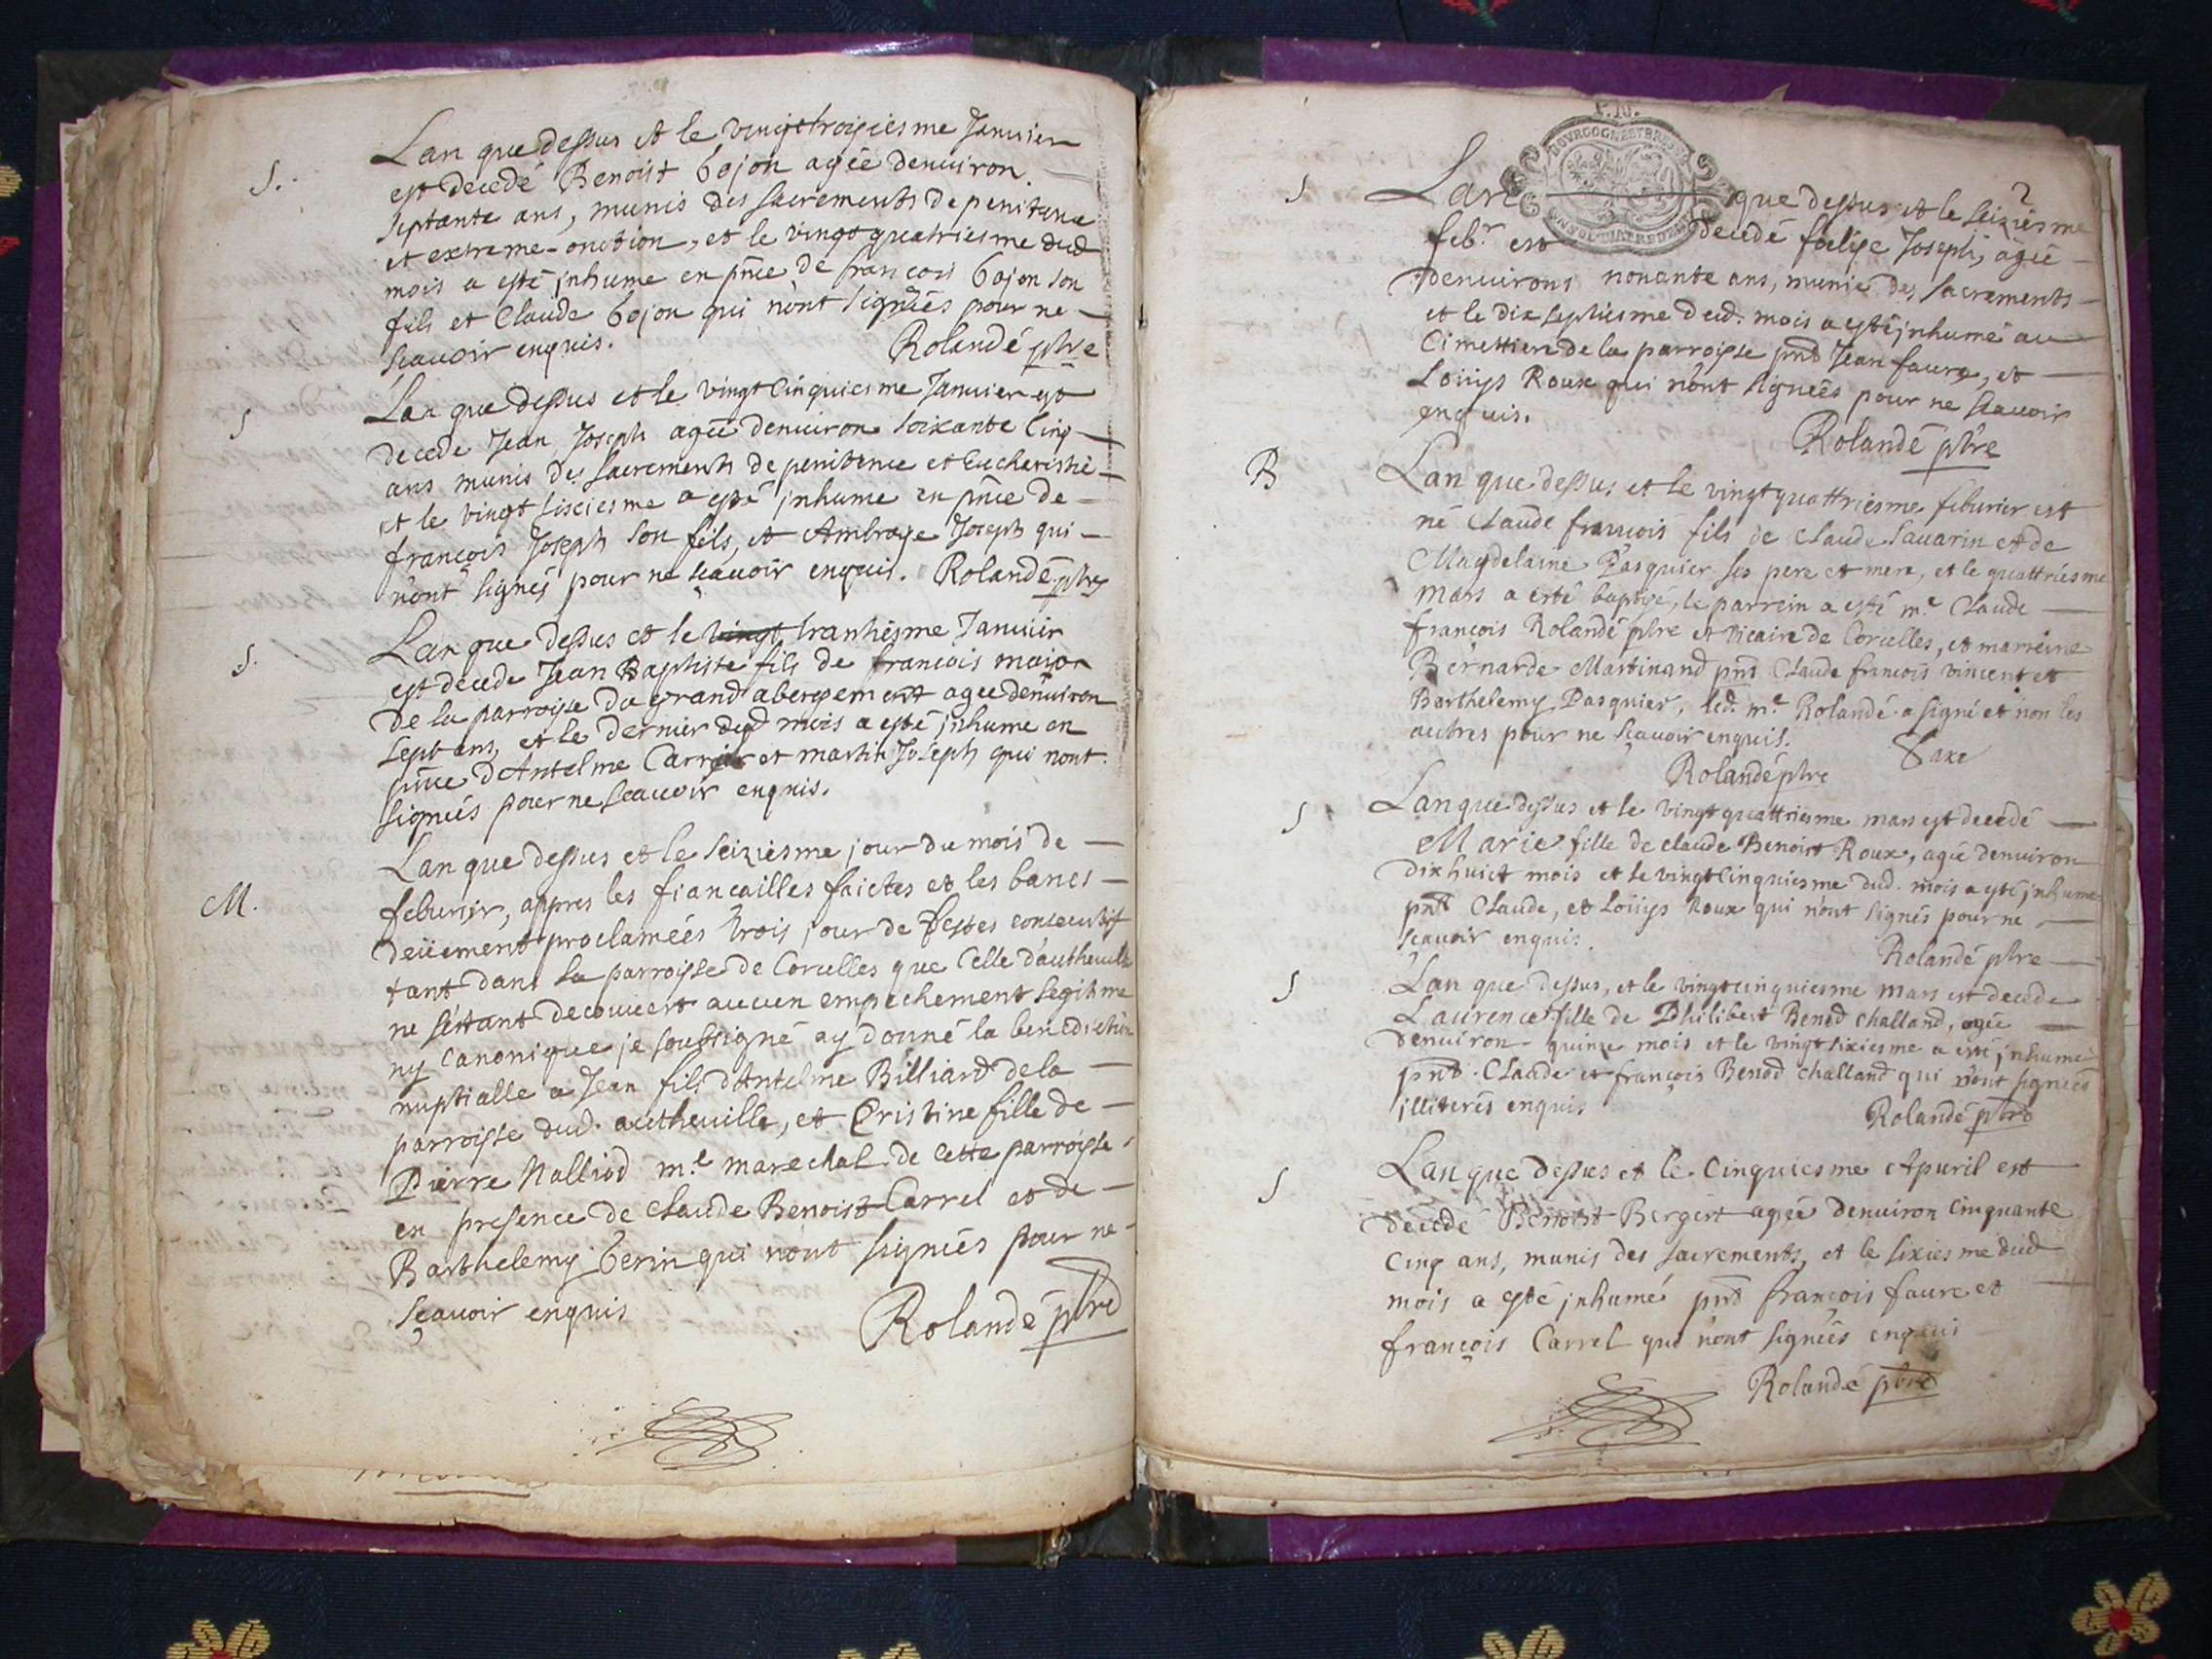 S.
Lan que dessus et le vingttroisiesme Januier
est decedé Benoist Bojon agée denuiron
septante ans, munis des sacrements de penitence
et extreme-onction, et le vingt quatriesme dud
mois a esté jnhume en pnce de francois Bojon son
fils et Claude Bojon qui n'ont signées pour ne
scauoir enquis.
Rolandé ptre
S
Lan que dessus et le vingt cinquiesme Januier est
decede Jean Joseph agée denuiron soixante cinq
ans munis des sacrements de penitence et Eucharistie
et le vingt sixiesme a esté jnhume en pnce de
françois Joseph son fils, et Ambroise Joseph qui
n'ont signés pour ne sçauoir enquis. Rolandé ptre
S.
Lan que dessus et le vingt trantiesme Januier
est decede Jean Baptiste fils de francois maior
de la parroisse du grand abergement agée denuiron
sept ans, et le dernier dud mois a esté jnhume en
pnce d'Antelme Carrier et martin Joseph qui nont
signées pour ne scauoir enquis.
M.
Lan que dessus et le seiziesme jour du mois de
feburier, appres les fiancailles faictes et les bancs
deüement proclamées trois jour de festes consecutif
tant dans la parroisse de Corcelles que celle d'autheuille
ne s'estant decouuert aucun empechement legitime
ny Canonique je soubsigné ay donné la benediction
nuptialle a Jean fils d'Antelme Billiard de la
parroisse dud. autheuille, et Cristine fille de
Pierre Nalliod m.e marechal de cette parroisse
en presence de claude Benoist Carrel et de
Barthelemy Berin qui n'ont signées pour ne
sçauoir enquis
Rolandé ptre
S
Lan que dessus et le seiziesme
febr. est decedé felise Joseph, agée
denuirons nonante ans, munie des sacrements
et le dix septiesme dud. mois a esté jnhumé au
Cimettiere de la parroisse pnt Jean faure, et
Loüys Roux qui n'ont signées pour ne scauoir
enquis.
Rolandé ptre
B
Lan que dessus et le vingtquattriesme feburier est
né Claude francois fils de claude Sauarin et de
Magdelaine Pasquier ses pere et mere, et le quattriesme
mars a esté baptisé, le parrein a esté m.e Claude
françois Rolandé ptre et vicaire de Corcelles, et marreine
Bernarde Martinand pnt Claude francois vincent et
Barthelemy Pasquier, led. m.e Rolandé a signé et non les
autres pour ne sçauoir enquis.
Rolandé ptre
S
Lan que dessus et le vingt quattriesme mars est decedé
Marie fille de claude Benoist Roux, agée denuiron
dixhuict mois et le vingtcinquiesme dud. mois a esté jnhume
pnt Claude, et Loüys Roux qui n'ont signés pour ne
scauoir enquis.
Rolandé ptre
S
Lan que dessus, et le vingtcinquiesme mars est decede
Laurence fille de Philibert Benod Challand, agée
denuiron quinze mois et le vingtsixiesme a esté jnhumé
pnt. Claude et françois Benod challand qui n'ont signées
jlliterés enquis
Rolandé ptre
S
Lan que dessus et le Cinquiesme Apuril est
decedé Benoist Bergert agée denuiron Cinquante
Cinq ans, munis des sacrements, et le sixiesme dud
mois a esté jnhumé pnt francois faure et
françois Carrel qui n'ont signées enquis
Rolandé ptre